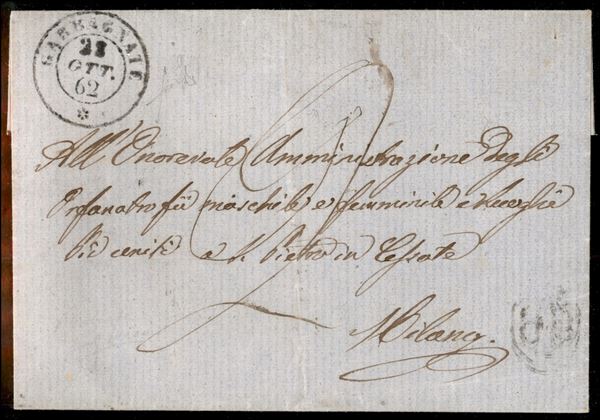 GARBAGNATE
28
OTT.
62
All'Onorevole Amministrazione degli
Orfanotrofii maschile e femminile e Luoghi
Pii uniti a S. Pietro in Gessate
Milano.